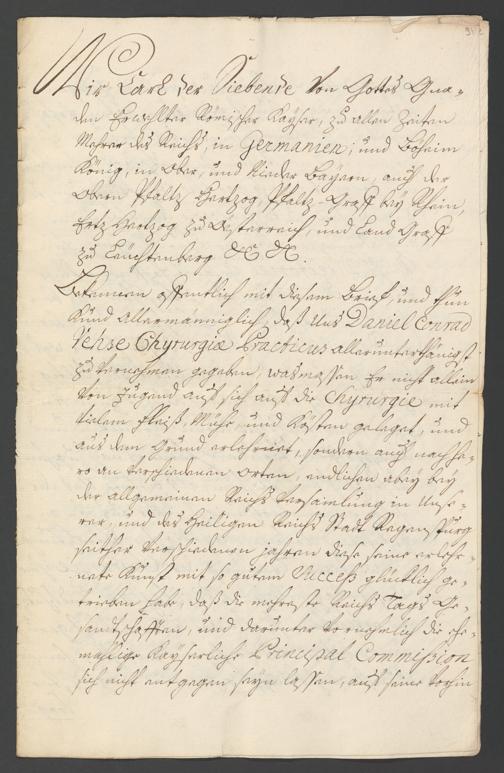 Wir Carl der Siebende Von Gottes Gna-
den Erwählter Römischer Kayser, zu allen Zeiten
Mehrer des Reichs, in Germanien, und Böheim
König, in Ober, und Nieder Bayern, auch der
Obern Pfaltz Hertzog, Pfaltz-Graff bey Rhein,
Ertz Hertzog zu Österreich, und Land Graff
zu Leüchtenberg &c &c.
Bekennen offentlich mit diesem Brief, und thun
Kund Allermänniglich, daß Uns Daniel Conrad
Vehse Chyrurgiæ Practicus allerunterthänigst
zu vernehmen gegeben, wasmassen Er nicht allein
von Jugend auf sich auf die Chyrurgie mit
vielem Fleiß, Mühe, und Kösten geleget, und
aus dem Grund erlehrnet, sondern auch nachhe-
ro an verschiedenen Orten, endlichen aber bey
der allgemeinen Reichs Versamlung in Unse-
rer, und des Heiligen Reichs Stadt Regenspurg
seither verschiedenen Jahren diese seine erlehr-
nete Kunst mit so gutem Success glücklich ge-
trieben habe, daß die mehreste Reichs Tags Ge-
sandtschafften, und darunter vornehmlich die ehe-
mahlige Kayserliche Principal Commission
sich nicht entgegen seyn lassen, auf seine vorhin